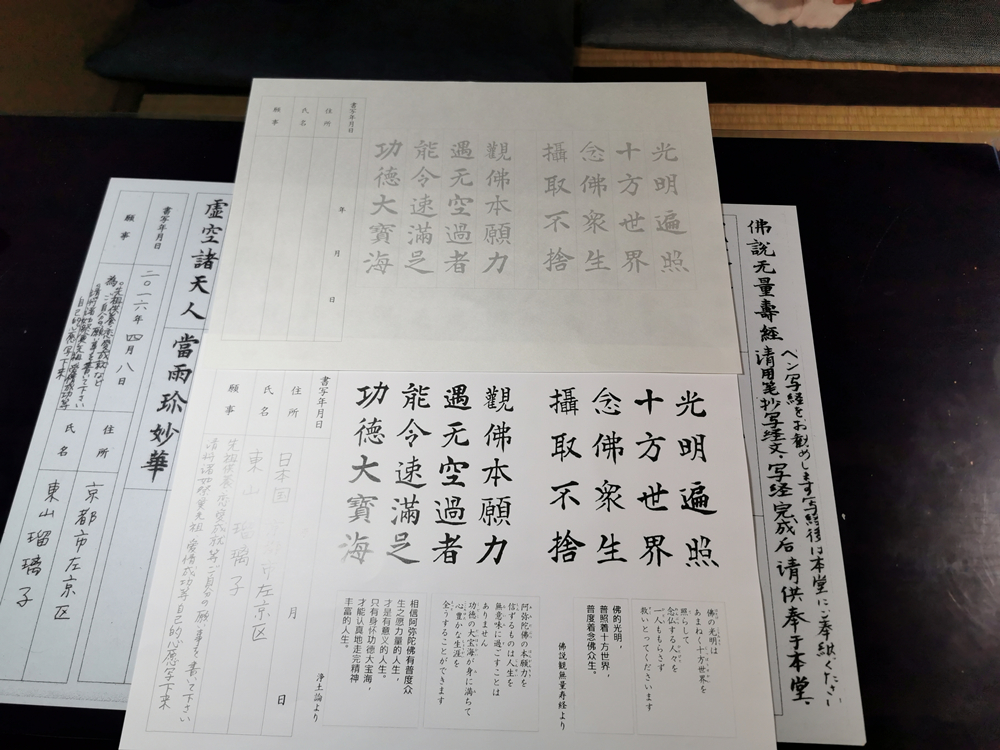 光明遍照
十方世界
念佛衆生
攝取不捨
觀佛本願力
遇无空過者
能令速滿足
功德大寳海
書写年月日
年
月
日
住所
氏名
願事
光明遍照
十方世界
念佛衆生
攝取不捨
觀佛本願力
遇无空過者
能令速滿足
功德大寳海
書写年月日
月
日
住所
日本国
左京区
氏名
東山
瑠璃子
願事
佛の光明は
あまねく十方世界を
照らして
念仏する人々を
一人ももらさず
救いとってくださいます
佛的光明，
普照着十方世界，
普度着念佛众生。
佛説観無量寿経より
阿弥陀佛の本願力を
信ずるものは人生を
無意味に過ごすことは
ありません
功徳の大宝海が身に満ちて
心豊かな生涯を
全うすることができます
相信阿弥陀佛有普度众
生之愿力量的人生，
才是有意义的人生。
只有身怀功德大宝海，
才能认真地走完精神
丰富的人生。
浄土論より
佛説无量壽經
ペン写経をお勧めします写経後は本堂にご奉納ください
请用笔抄写经文,写经完成后请供奉于本堂.
虚空諸天人
當雨珎妙華
書写年月日
二〇一六年四月八日
願事
住所
京都市左京区
氏名
東山瑠璃子